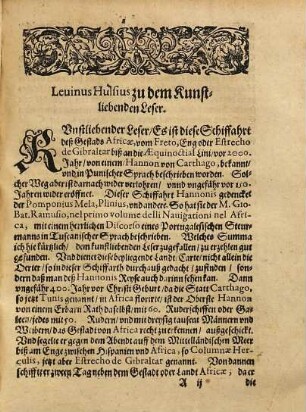 Levinus Hulsius zu dem Kunst-
liebenden Leser.
KUnstliebender Leser/ Es ist diese Schiffahrt
deß Gestads Africæ, vom Freto, Eng oder Estrecho
de Gibraltar biß an die Æquinoctial Lini/ vor 2000.
Jahr/ von einem Hannon von Carthago, bekannt/
vnd in Punischer Sprach beschrieben worden. Sol-
cher Weg aber ist darnach wider verlohren/ vnnd vngefähr vor 150
Jahren wider eröffnet. Dieser Schiffahrt Hannonis gedencket
der Pomponius Mela, Plinius, vnd andere. So hat sie der M. Gio
Bat. Ramusio, nel primo volume delli Navigationi nel Afri-
ca, mit einem herrlichen Discorso eines Portugalesischen Steur-
manns in Tuscanischer Sprach beschrieben. Welches Summa
ich hie kürtzlich/ den kunstliebenden Leser zugefallen/ zu erzehlen
fürgenommen. Vnd dieweil diese beyligende Landt Carte/ nicht allein die
Oerter/ so in dieser Schiffarth durch auß gedacht/ zu finden/ son-
dern daß man deß Hannonis Reyse auch darinn sehen kan. Dann
vngefähr 400. Jahr vor Christi Geburt/ da die Statt Carthago,
so jetzt Tunis genannt/ in Africa floriert/ ist der Oberste Hannon
von einem Erbarn Rath daselbst/ mit 60. Ruderschiffen oder Ga-
leen/ jedes mit 50. Rudern/ vnd mit dreyssig tausent Männern vnd
Weibern/ das Gestad von Africa recht zu erkennen/ außgeschickt.
Vnd segelte er gegen dem Abendt auß dem Mittelländischen Meer
biß am Enge zwischen Hispanien vnd Africa, so Columnæ Hercu-
lis, jetzt aber Estrecho de Gibraltar genannt. Von dannen
schifft er zween Tag neben dem Gestad oder Landt Africæ, da er
A ij
die